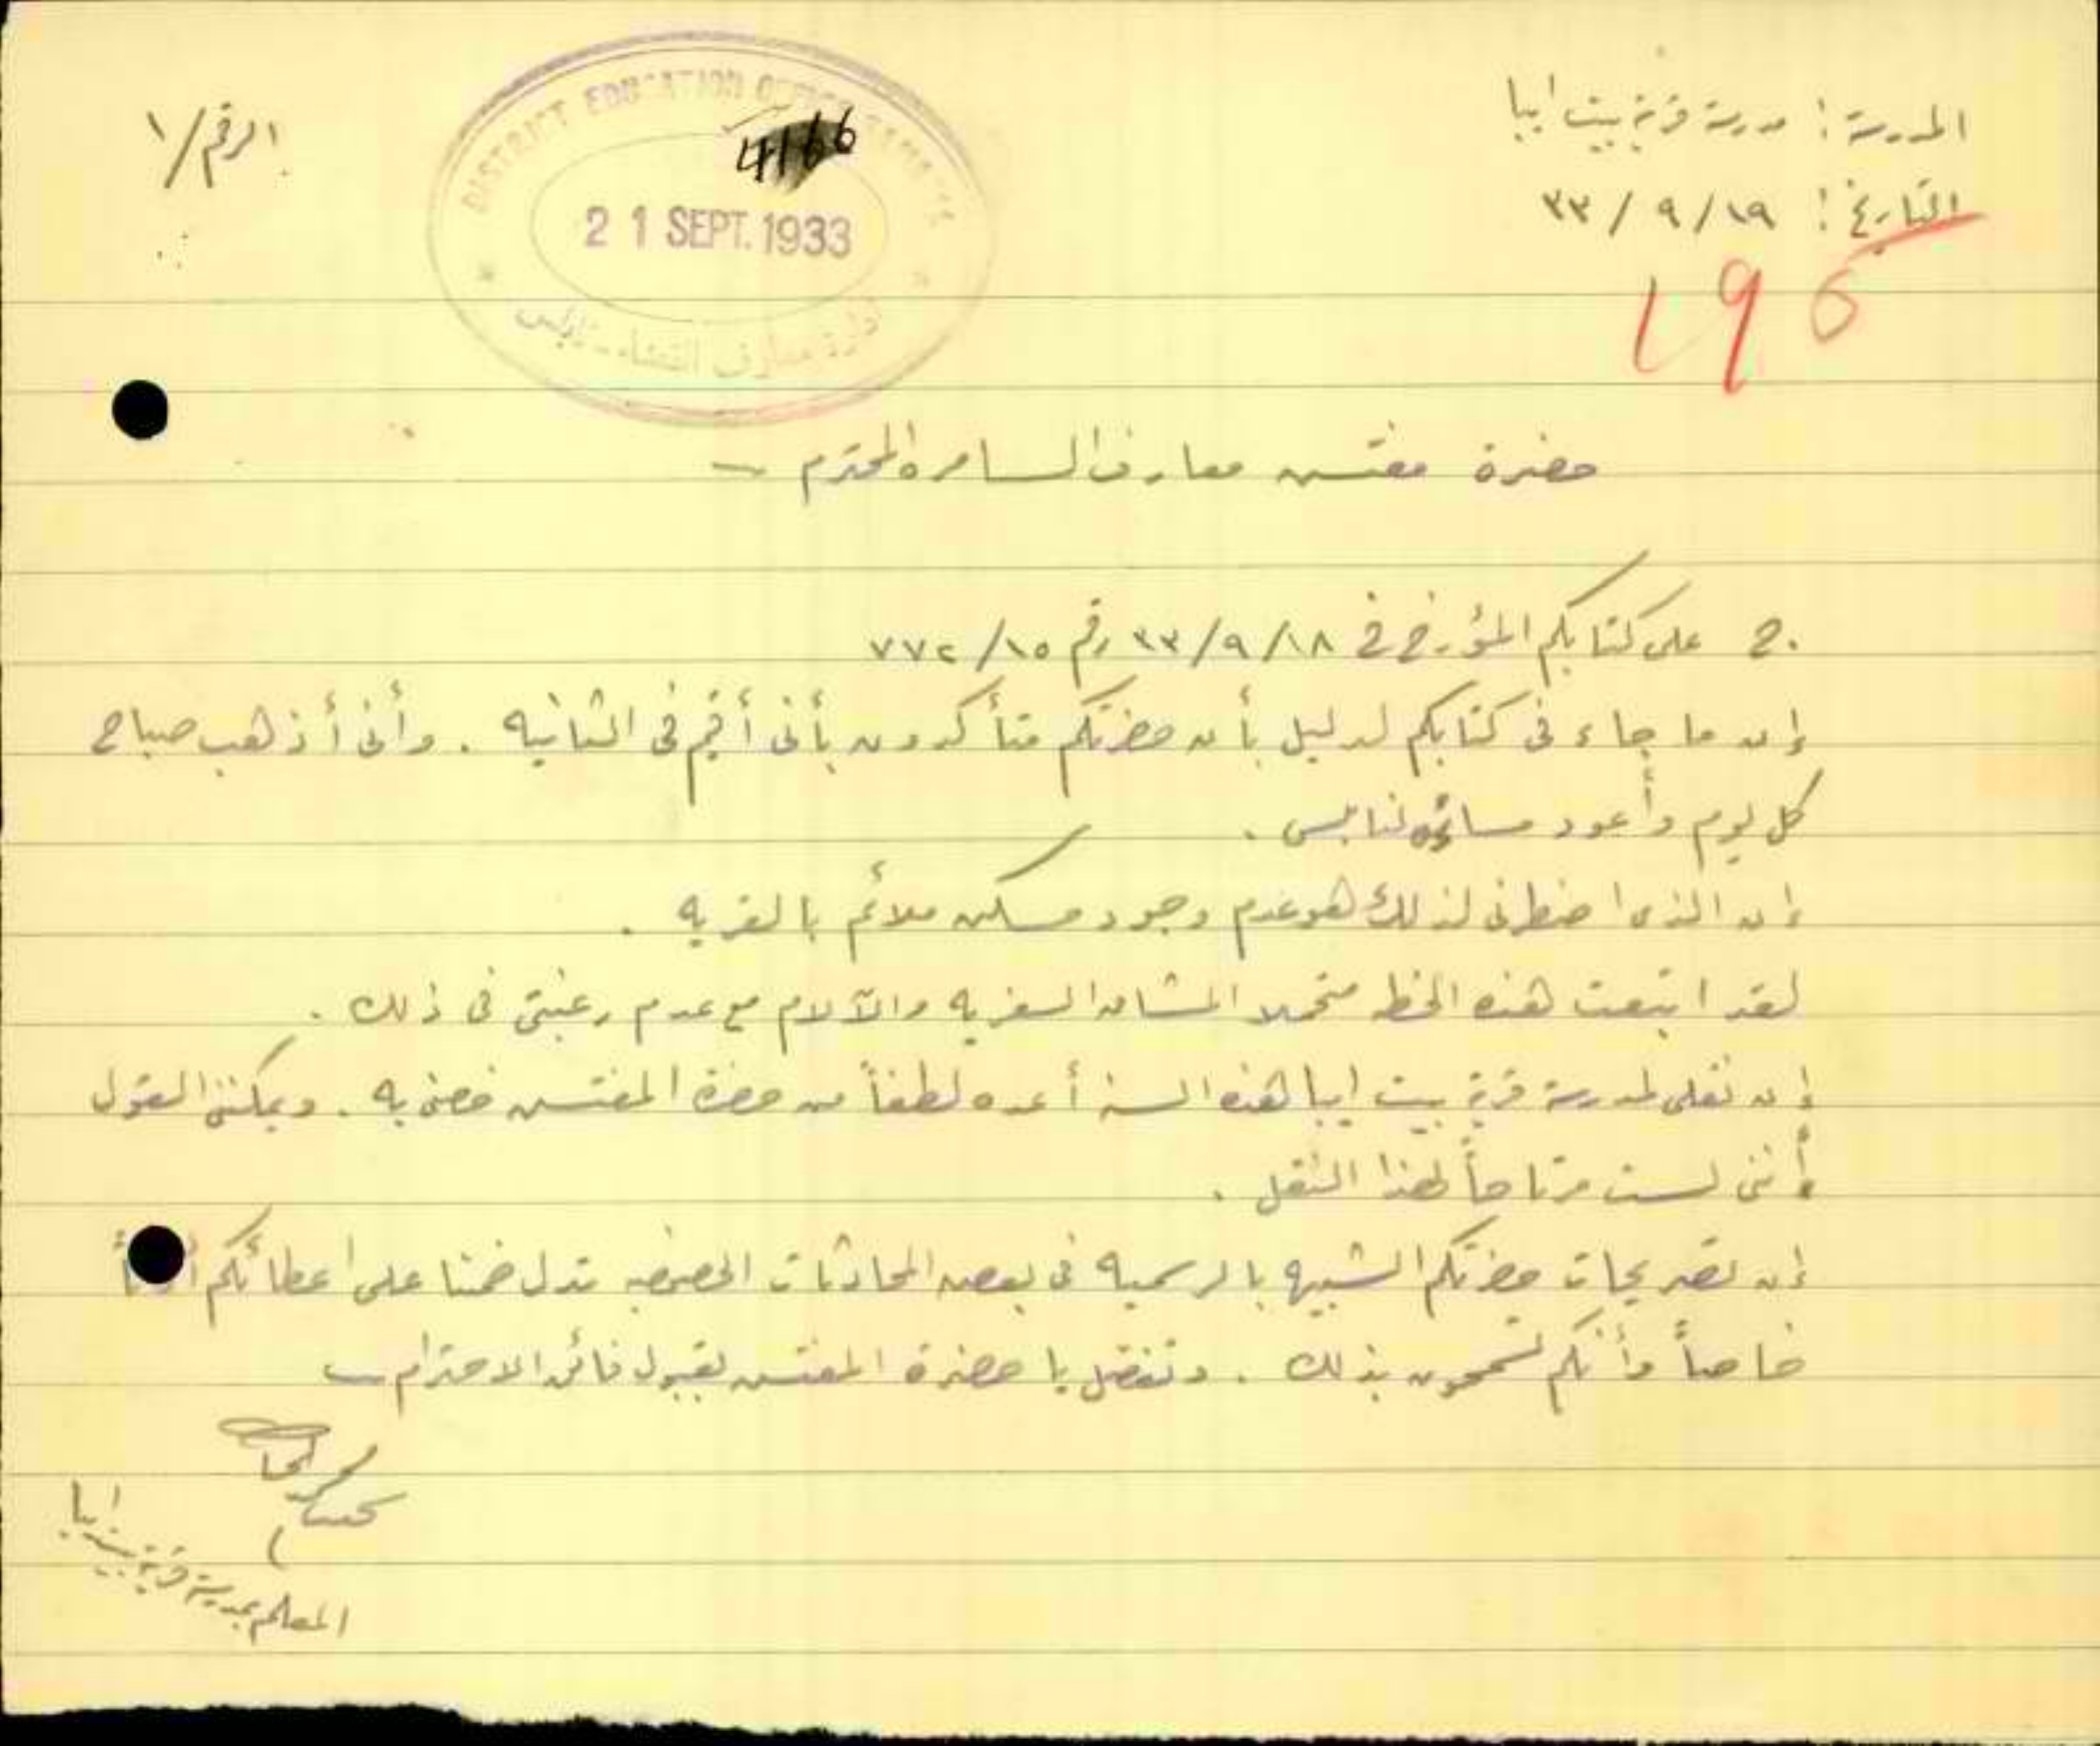 المدرسة : مدرسة قرية بيت ايبا
الرقم / ١
التاريخ : ١٩ / ٩ / ٣٣
DISTRICT EDUCATION OFFICE
4166
21 SEPT. 1933
ادارة معارف القضاء - نابلس
195
حضرة مفتش معارف السامره المحترم
ج. على كتابكم المؤرخ في ١٨ / ٩ / ٣٣ رقم ١٥ / ٧٧٢
إن ما جاء في كتابكم لدليل بأن حضرتكم متأكدون بأني أقيم في الثانيه . وأني أذهب صباح
كل يوم وأعود مسائه لنابلس .
إن الذي اضطرني لذلك هو عدم وجود مسكن ملائم بالقريه .
لقد اتبعت هذه الخطه متحملا المشاق السفريه والآلام مع عدم رغبتي في ذلك .
إن نقلي لمدرسة قرية بيت ايبا هذه السنة أعده لطفاً من حضرة المفتش خصني به . ويمكنني القول
أنني لست مرتاحاً لهذا النقل .
إن تصريحات حضرتكم الشبيهه بالرسميه في بعض المحادثات الخصوصيه تدل ضمنا على اعطائكم
خاصاً وأنكم تسمحون بذلك . وتفضل يا حضرة المفتش بقبول فائق الاحترام
المعلم بمدرسة قرية بيت ايبا